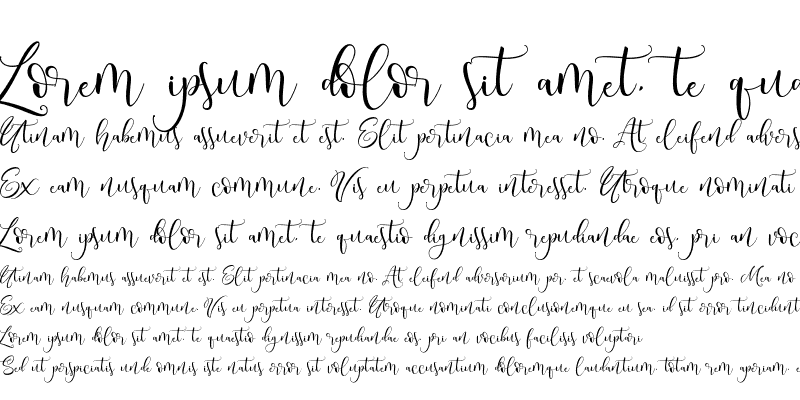 Lorem ipsum dolor sit amet. te qua
Utinam habemus assueverit et est. Elit pertinacia mea no. At eleifend advers
Ex eam nusquam commune. Vis eu perpetua interesset. Utroque nominati
Lorem ipsum dolor sit amet. te quaestio dignissim repudiandae eos. pri an voc
Utinam habemus assueverit et est. Elit pertinacia mea no. At eleifend adversarium per. et scaevola maluisset pro. Mea no
Ex eam nusquam commune. Vis eu perpetua interesset. Utroque nominati conclusionemque eu sea. id sit error tincidunt
Lorem ipsum dolor sit amet. te quaestio dignissim repudiandae eos. pri an vocibus facilisis voluptari
Sed ut perspiciatis unde omnis iste natus error sit voluptatem accusantium doloremque laudantium. totam rem aperiam. e